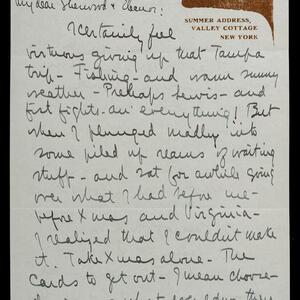 My dear Sherwood & Eleanor:
SUMMER ADDRESS,
VALLEY COTTAGE
NEW YORK
I certainly feel
virtuous giving up that Tampa
trip - Fishing - and warm sunny
weather - Prehaps Lewis - and
fist fights - an' everything!! But
when I plunged madly into
some piled up reams of waiting
stuff - and sat for awhile going
over what I had before me -
before Xmas and Virginia -
I realised that I couldn't make
it. Take Xmas alone - The
Cards to get out - I mean choose -